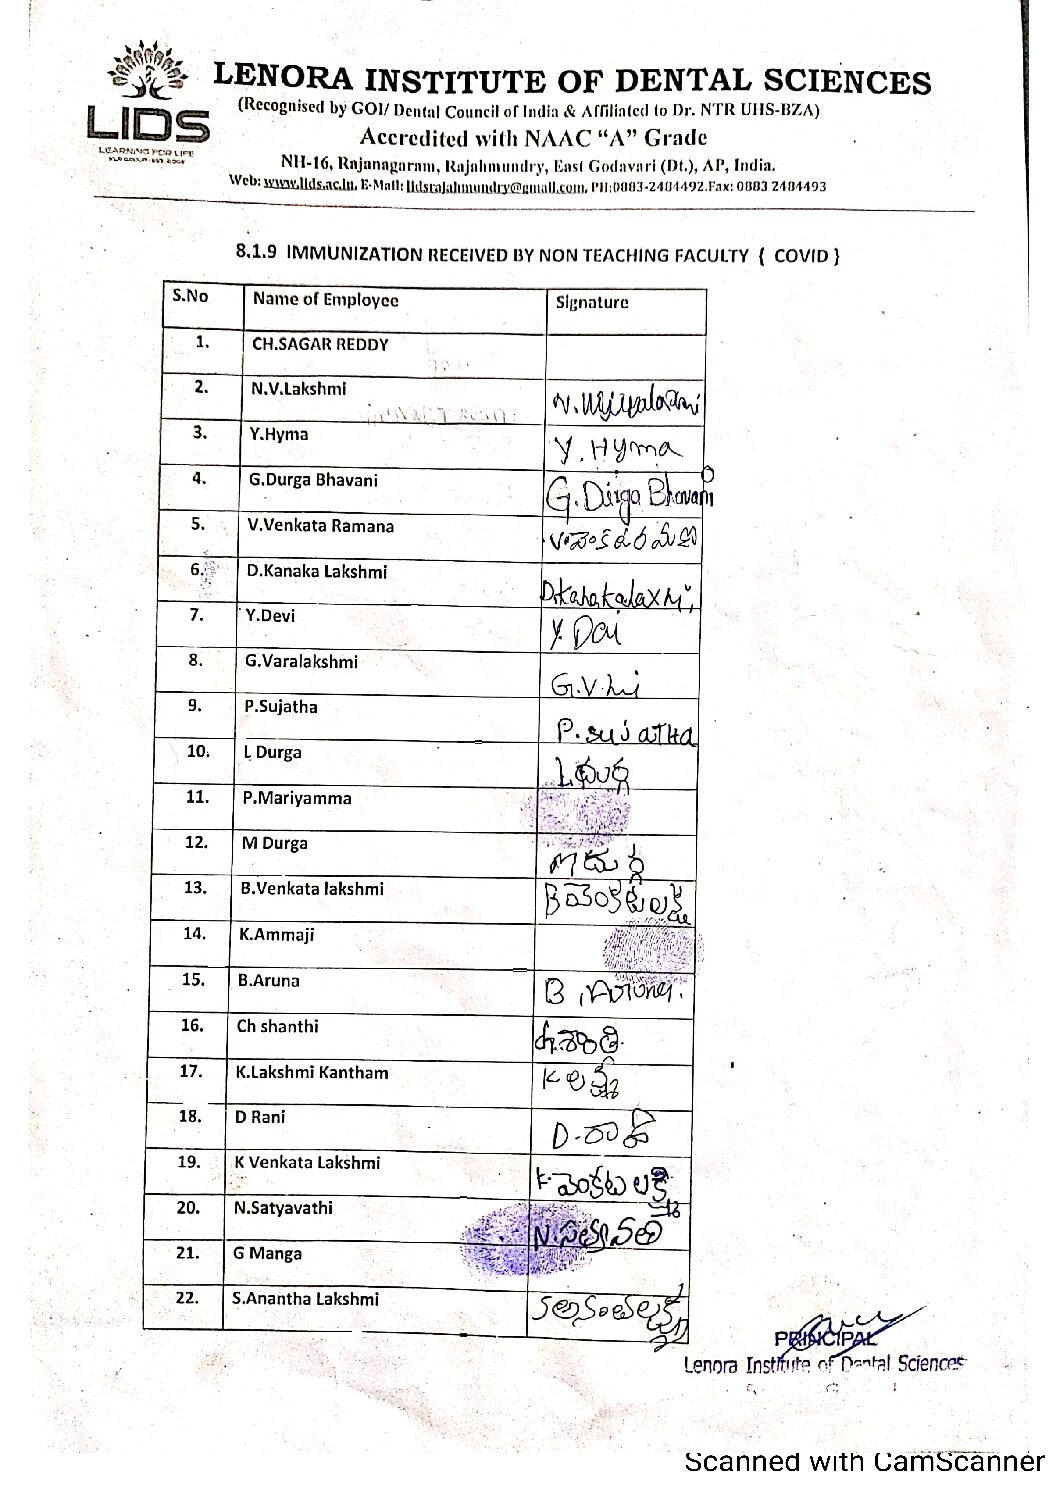 LENORA INSTITUTE OF DENTAL SCIENCES
(Recognised by GOI/ Dental Council of India & Affiliated to Dr. NTR UHS-BZA)
Accredited with NAAC “A” Grade
NH-16, Rajanagaram, Rajahmundry, East Godavari (Dt.), AP, India.
Web: www.lids.ac.in, E-Mail: lidsrajahmundry@gmail.com, PH:0883-2484492.Fax: 0883 2484493
LIDS
LEARNING FOR LIFE
8.1.9 IMMUNIZATION RECEIVED BY NON TEACHING FACULTY { COVID }
S.No Name of Employee Signature
1. CH.SAGAR REDDY
2. N.V.Lakshmi
3. Y.Hyma Y. Hyma
4. G.Durga Bhavani G. Durga Bhavani
5. V.Venkata Ramana V. వెంకటరమణ
6. D.Kanaka Lakshmi D.KanakalaxMi
7. Y.Devi Y. Devi
8. G.Varalakshmi G.V.
9. P.Sujatha P. sujatha
10. L Durga L దుర్గ
11. P.Mariyamma
12. M Durga M దుర్గ
13. B.Venkata lakshmi B వెంకటలక్ష్మి
14. K.Ammaji
15. B.Aruna B. Aruna.
16. Ch shanthi ch. శాంతి
17. K.Lakshmi Kantham K లక్ష్మి
18. D Rani D. రాణి
19. K Venkata Lakshmi K. వెంకట లక్ష్మి
20. N.Satyavathi N. సత్యవతి
21. G Manga
22. S.Anantha Lakshmi S అనంతలక్ష్మి
PRINCIPAL
Lenora Institute of Dental Sciences
Scanned with CamScanner